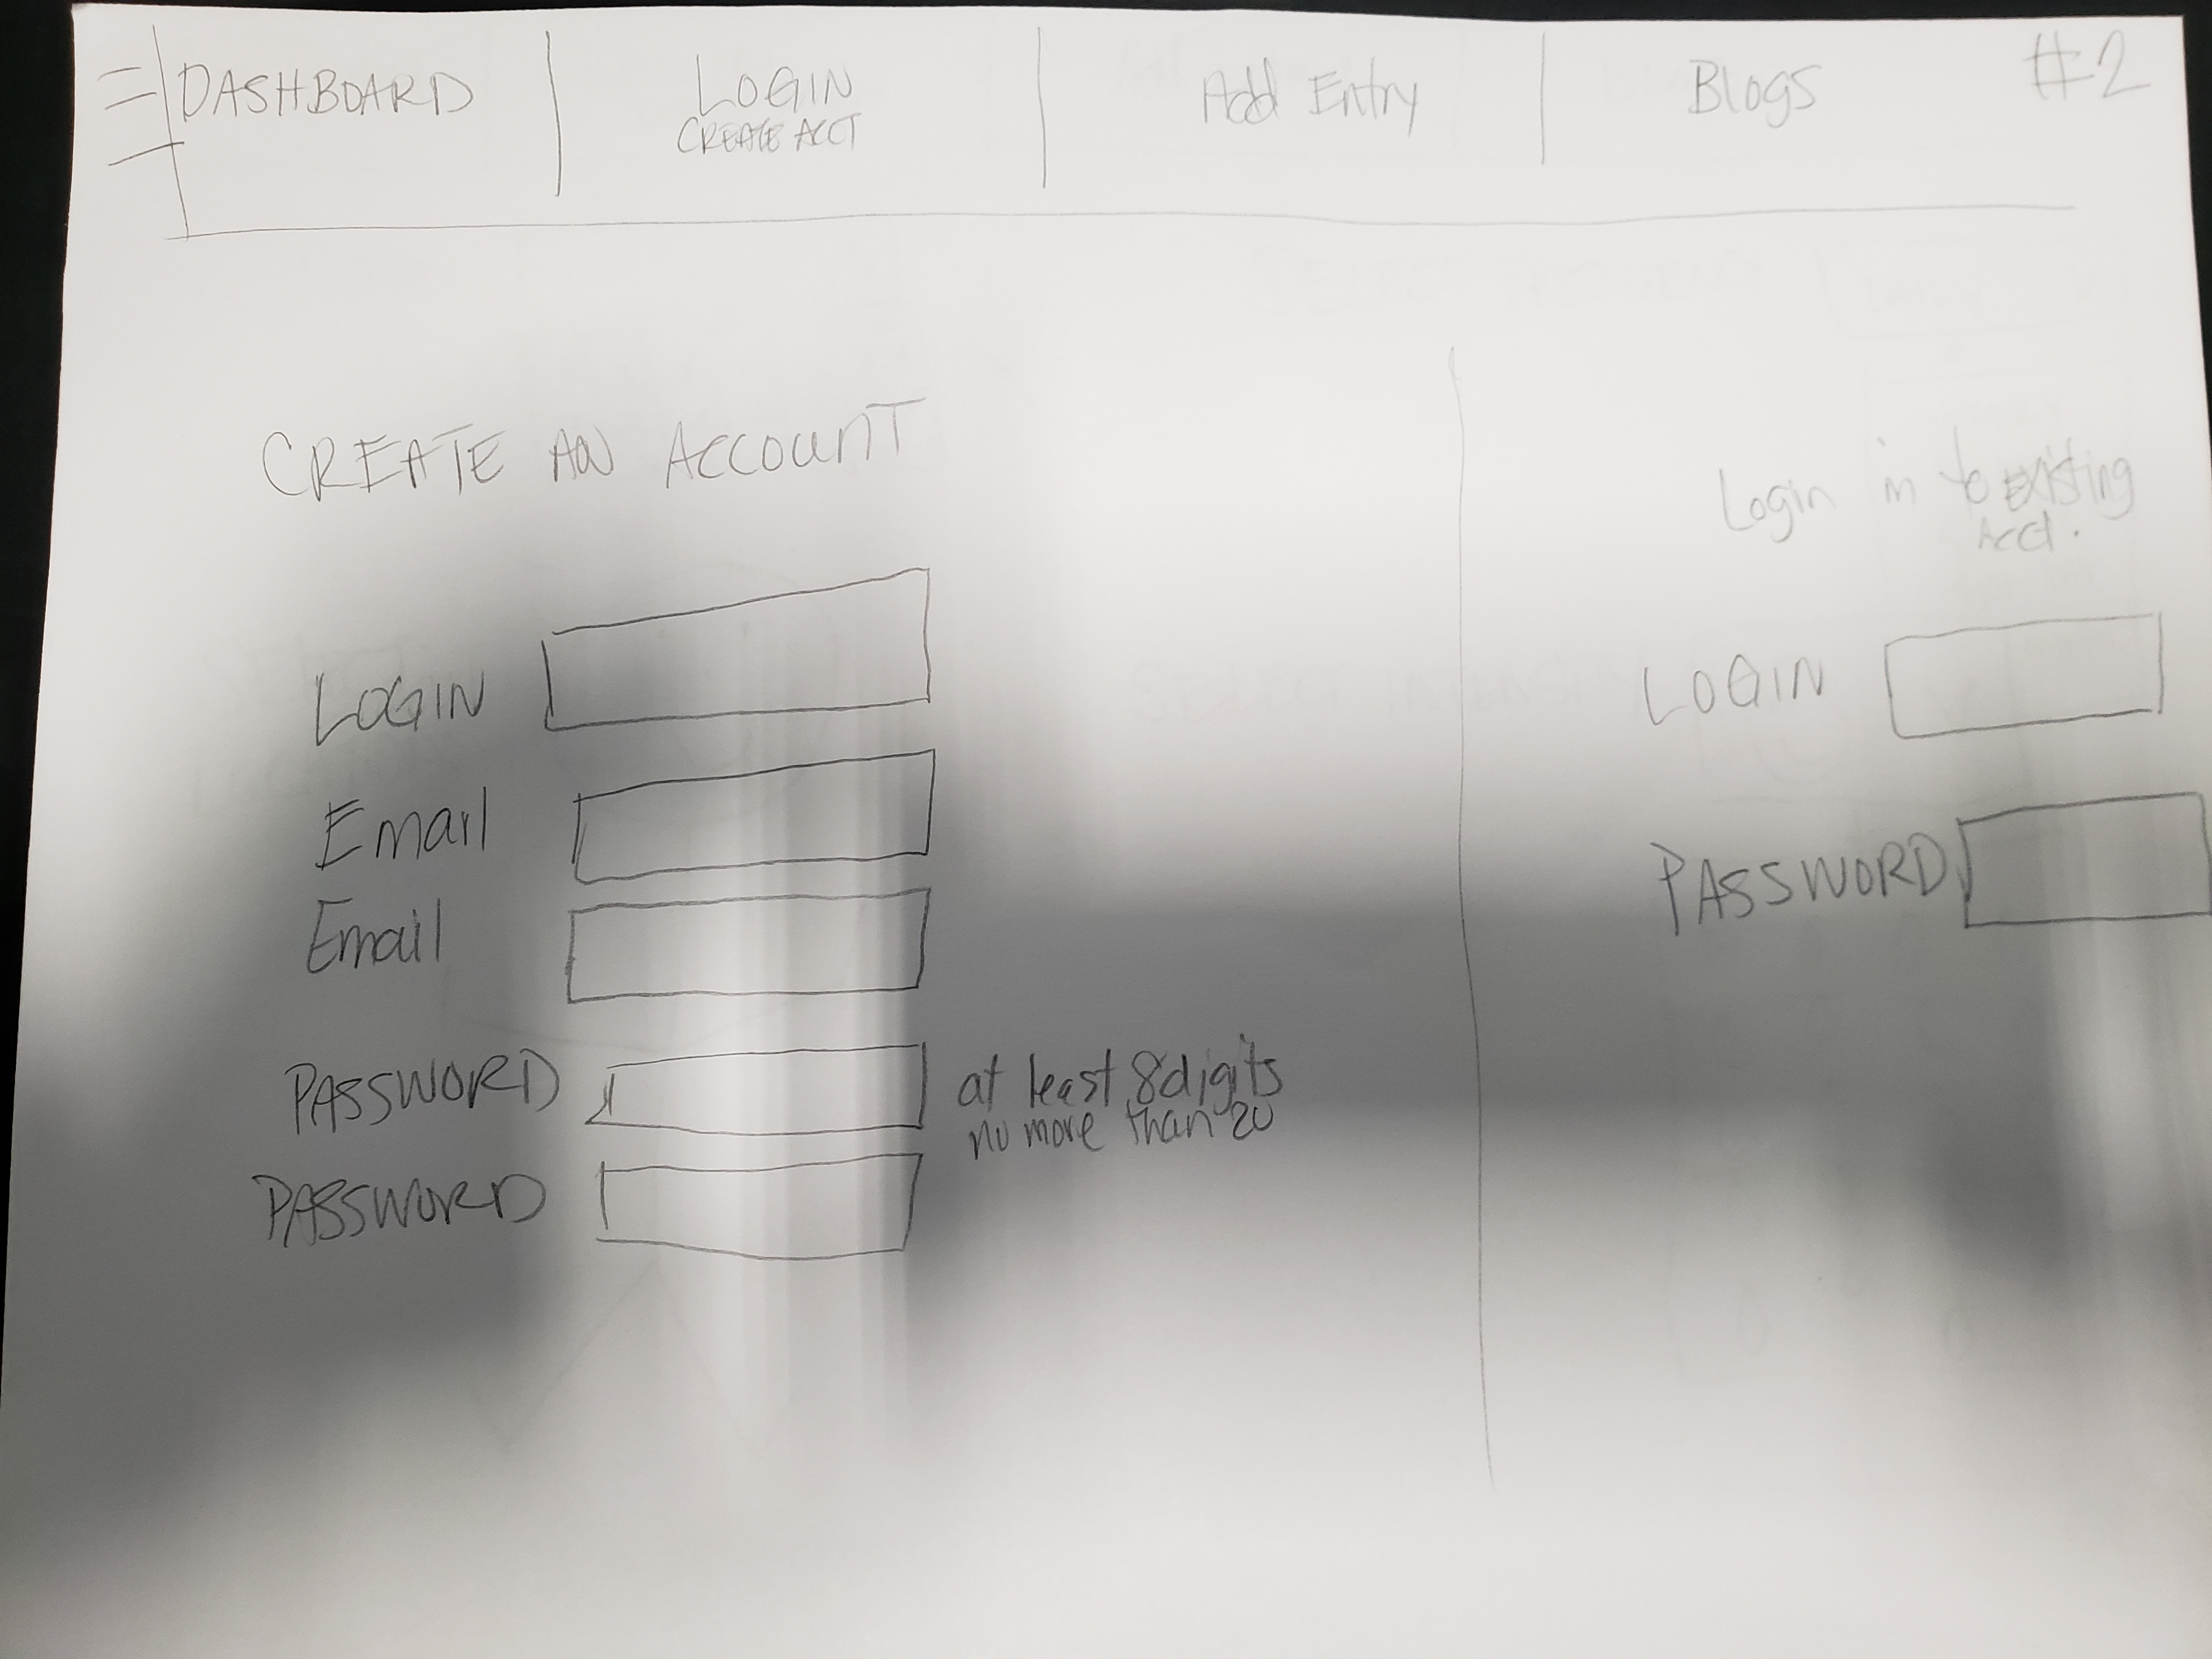 DASHBOARD
LOGIN
CREATE ACCT
Add Entry
Blogs
#2
CREATE AN ACCOUNT
LOGIN
Email
Email
PASSWORD
at least 8 digits
no more than 20
PASSWORD
Login in to existing
Acct.
LOGIN
PASSWORD